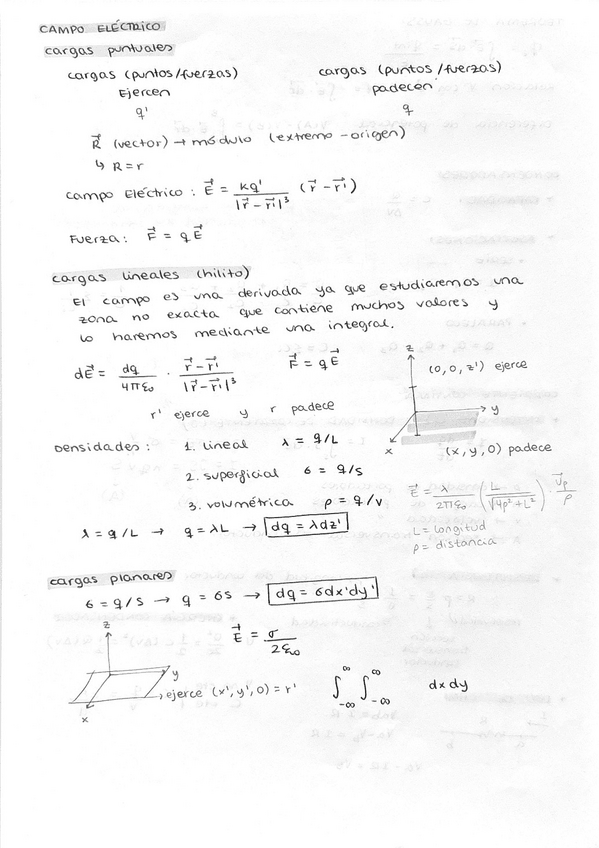 CAMPO ELÉCTRICO
cargas puntuales
cargas (puntos/fuerzas) cargas (puntos/fuerzas)
Ejercen padecen
q' q
R⃗ (vector) → módulo (extremo - origen)
↳ R = r
campo Eléctrico : E⃗ = kq' / |r⃗ - r⃗'|³ (r⃗ - r⃗')
Fuerza : F⃗ = q E⃗
cargas lineales (hilito)
El campo es una derivada ya que estudiaremos una
zona no exacta que contiene muchos valores y
lo haremos mediante una integral.
dE⃗ = dq / 4πε₀ · r⃗ - r⃗' / |r⃗ - r⃗'|³ F⃗ = q E⃗
r' ejerce y r padece
z
(0,0,z') ejerce
y
x
(x,y,0) padece
Densidades : 1. lineal λ = q/L
2. superficial σ = q/s
3. volumétrica ρ = q/v
E⃗ = λ / 2πε₀ (L / √4ρ² + L²) · U⃗ρ / ρ
L = longitud
ρ = distancia
λ = q/L → q = λL → dq = λdz'
cargas planares
σ = q/s → q = σs → dq = σdx'dy'
E⃗ = σ / 2ε₀
z
y
x
ejerce (x',y',0) = r'
∫_-∞^∞ ∫_-∞^∞ dxdy